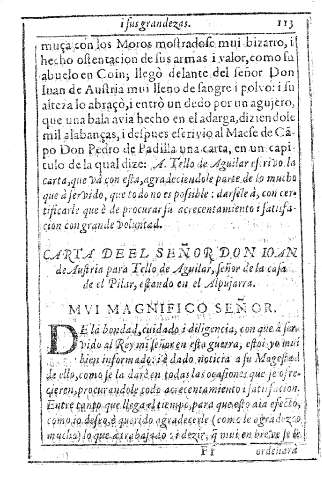 i sus grandezas. 113
muça con los Moros mostradose mui bizarro, i
hecho ostentacion de sus armas i valor, como su
abuelo en Coin; llegò delante del señor Don
Iuan de Austria mui lleno de sangre i polvo: i su
alteza lo abraçò, i entrò un dedo por un agujero,
que una bala avia hecho en el adarga, diziendole
mil alabanças, i despues escrivio al Maese de Cã-
po Don Pedro de Padilla una carta, en un capi-
tulo de la qual dize: A. Tello de Aguilar escrivo la
carta, que và con esta, agradeciendole parte de lo mucho
que à servido, que todo no es posible: darsele à, con cer-
tificarle que è de procurar su acrecentamiento i satisfa-
cion con grande voluntad.
CARTA DEEL SEÑOR DON IOAN
de Austria para Tello de Aguilar, señor de la casa
de el Pilar, estando en el Alpujarra.
MVI MAGNIFICO SEÑOR.
DE la bondad, cuidado i diligencia, con que à ser-
vido al Rey mi señor en esta guerra, estoi yo mui
bien informado: i è dado noticia a su Magestad
de ello, como se la darè en todas las ocasiones que se ofre-
cieren, procurandole todo acrecentamiento i satisfacion.
Entre tanto que llega el tiempo, para que esto aia efecto,
como io deseo, è querido agradecerle (como le agradezco
mucho) lo que à trabajado: i dezir, q̃ mui en breve se le
Pp ordenarà